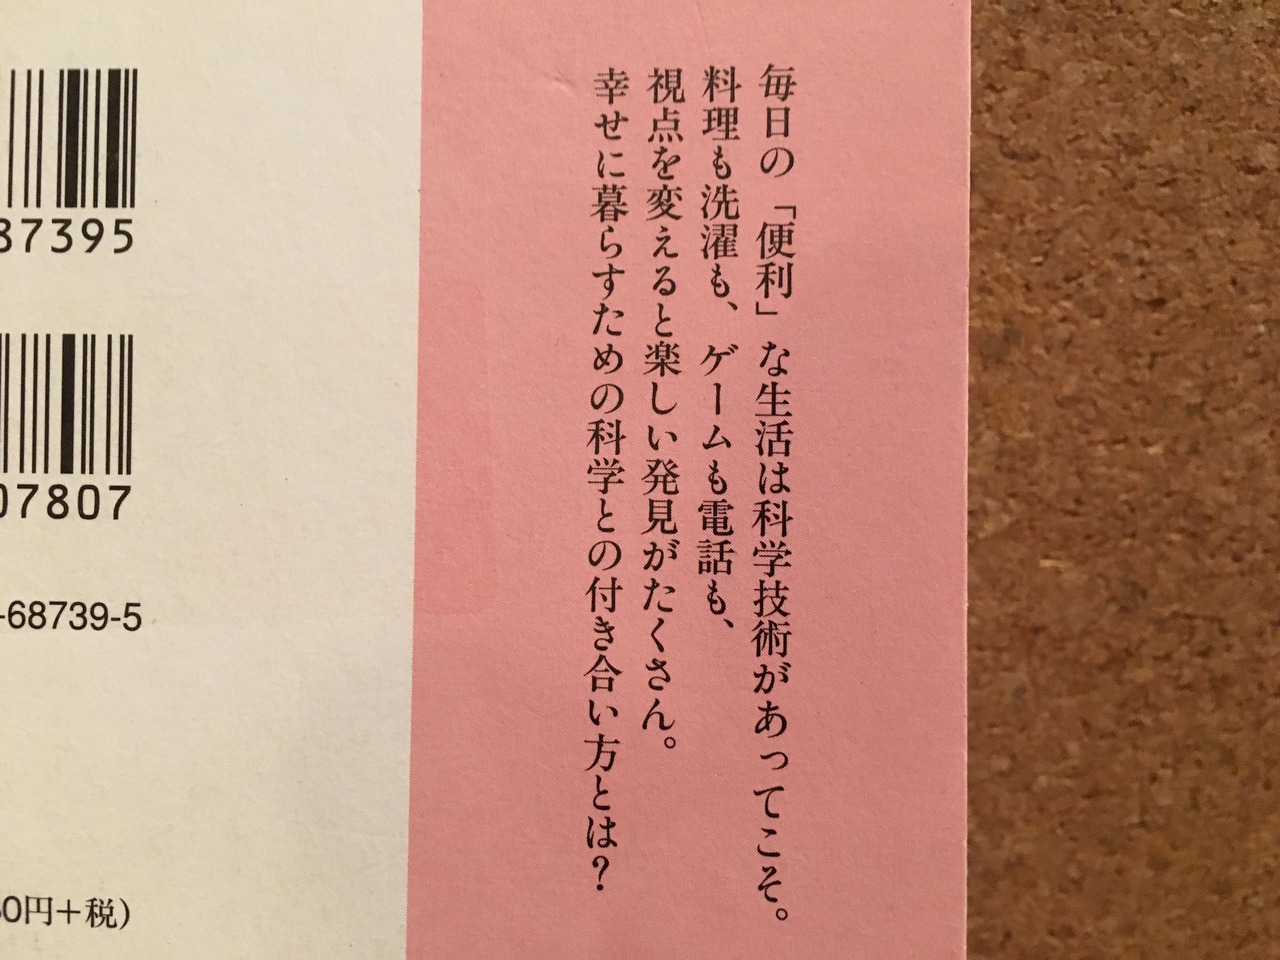 毎日の「便利」な生活は科学技術があってこそ。
料理も洗濯も、ゲームも電話も、
視点を変えると楽しい発見がたくさん。
幸せに暮らすための科学との付き合い方とは？
87395
07807
-68739-5
0円＋税）